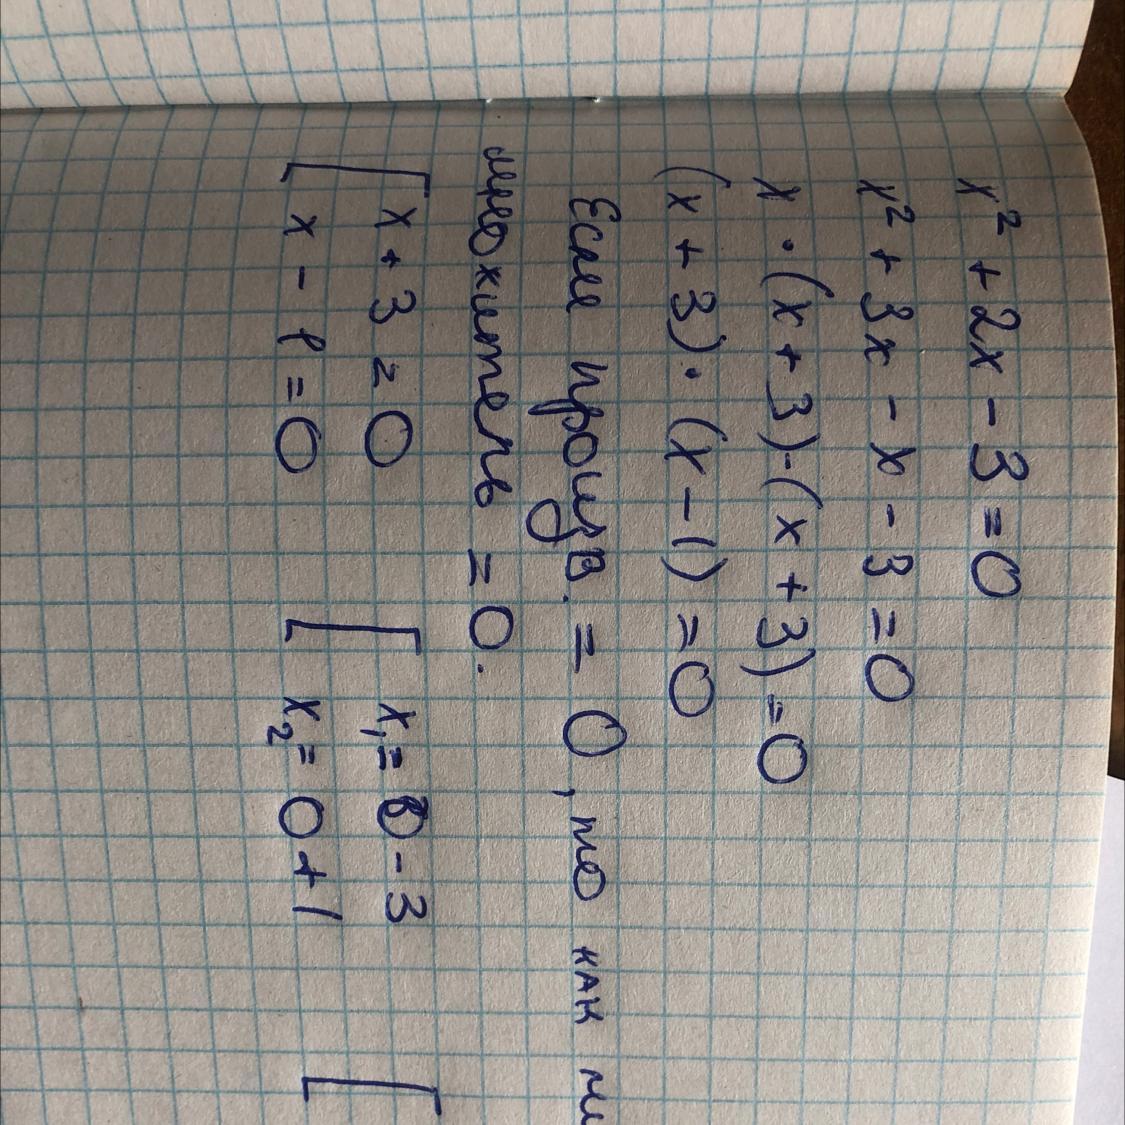 x² + 2x - 3 = 0
x² + 3x - x - 3 = 0
x · (x + 3) - (x + 3) = 0
(x + 3) · (x - 1) = 0
Если произв. = 0, то как
множитель = 0.
[ x + 3 = 0 [ x₁ = 0 - 3 [
x - 1 = 0 x₂ = 0 + 1